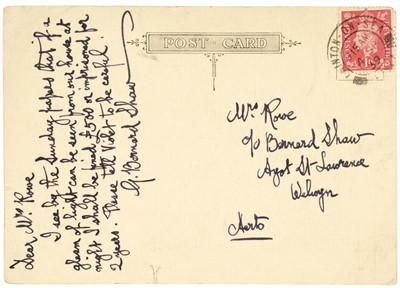 Dear Mrs Rowe
I see by the Sunday papers that if a
gleam of light can be seen from our house at
night I shall be fined £500 or imprisoned for
2 years. Please tell Violet to be careful.
G. Bernard Shaw
POST CARD
Mrs Rowe
c/o Bernard Shaw
Ayot St Lawrence
Welwyn
Herts